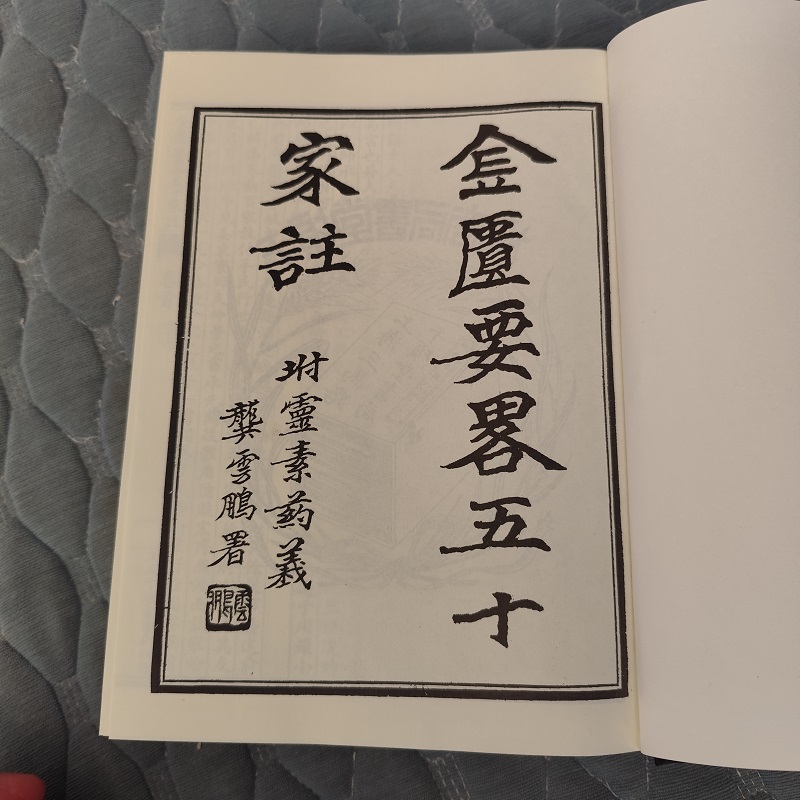 金匱要畧五十
家註
坿靈素葯義
龔雲鵬署
雲鵬